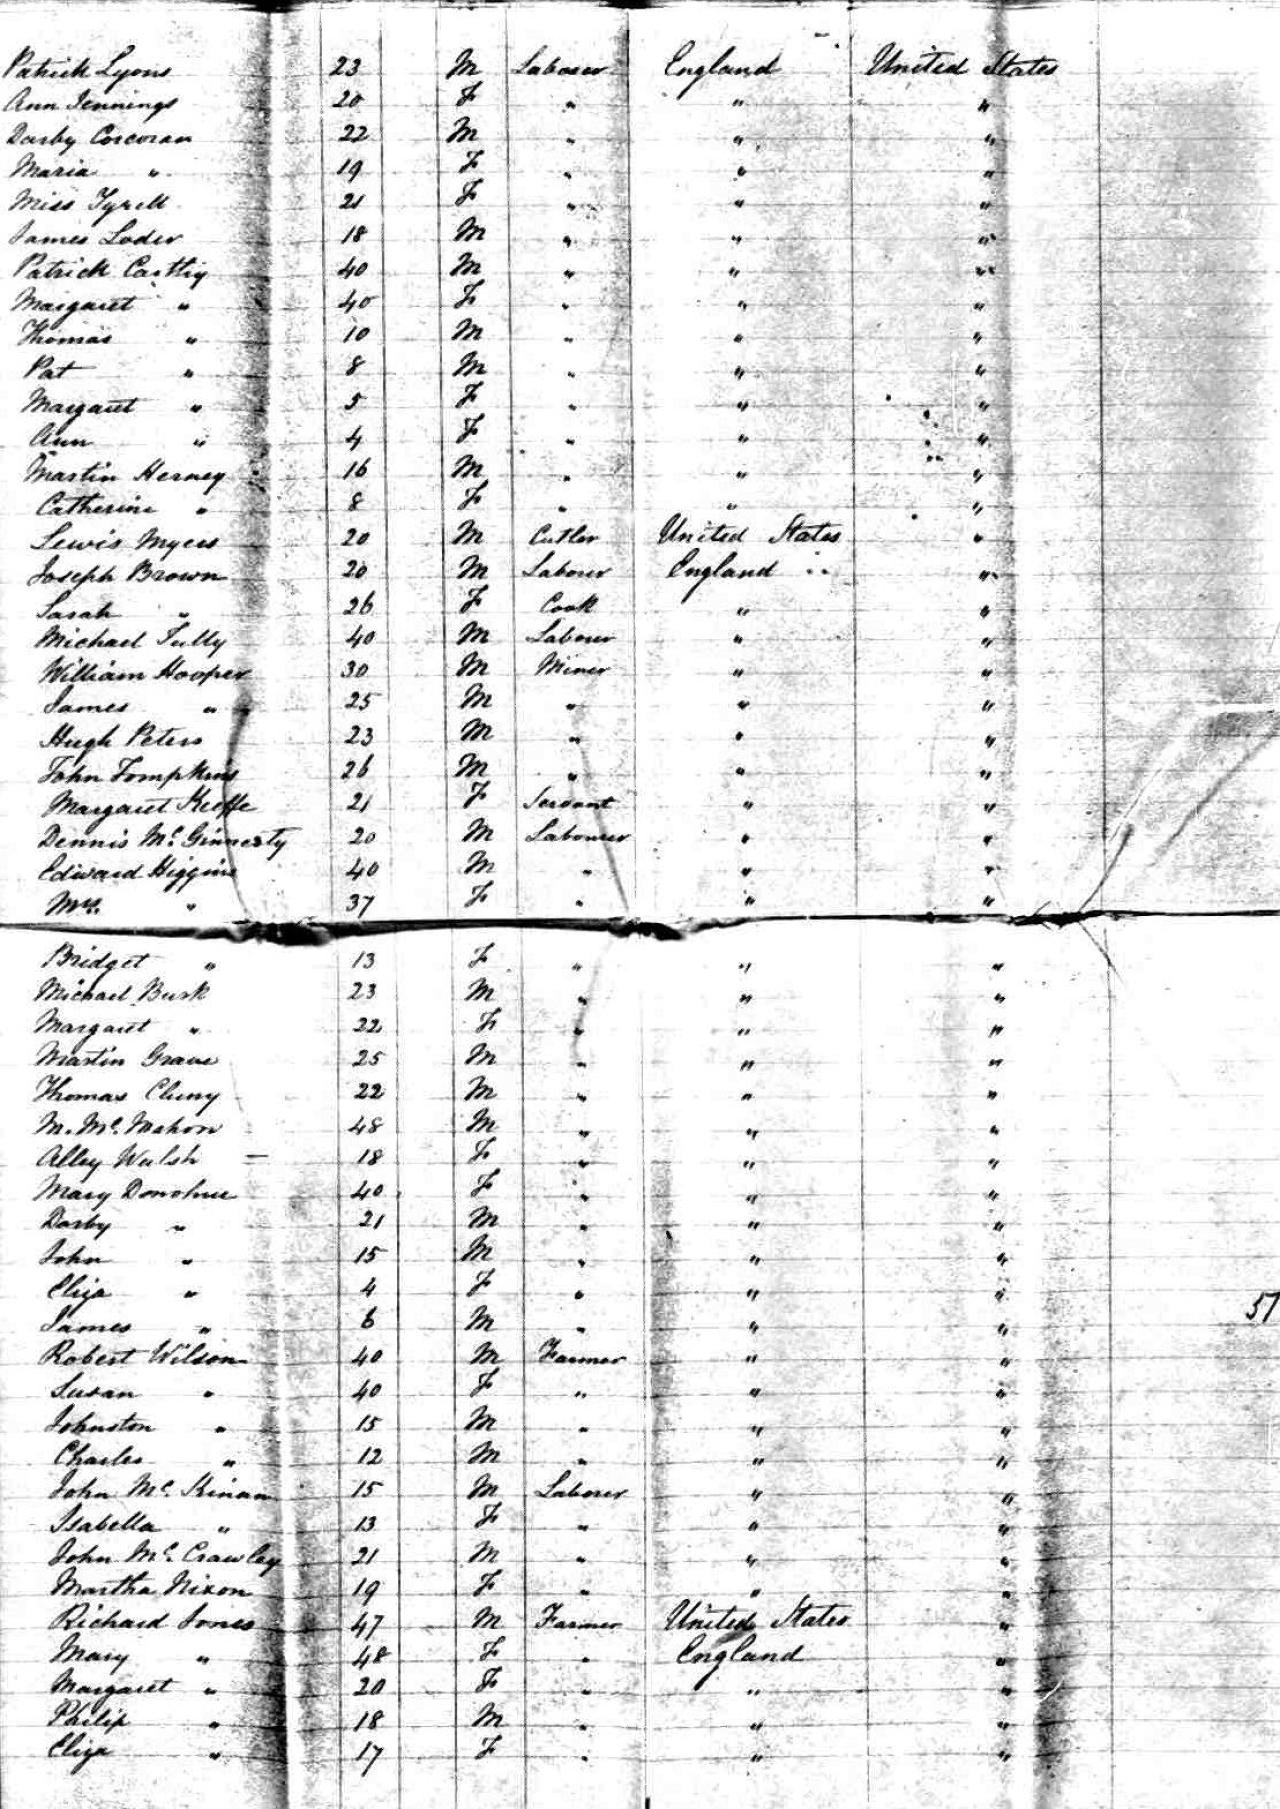 Patrick Lyons 23 M Laborer England United States
Ann Jennings 20 F " " "
Darby Corcoran 22 M " " "
Maria " 19 F " " "
Miss Tyrell 21 F " " "
James Loder 18 M " " "
Patrick 40 M " " "
Margaret " 40 F " " "
Thomas " 10 M " " "
Pat " 8 M " " "
Margaret " 5 F " " "
Ann " 4 F " " "
Martin Herney 16 M " " "
Catherine " 8 F " " "
Lewis Myers 20 M Cutler United States "
Joseph Brown 20 M Laborer England "
Sarah " 26 F Cook " "
Michael Tully 40 M Laborer " "
William Hooper 30 M Miner " "
James " 25 M " " "
Hugh Peters 23 M " " "
John Tompkins 26 M " " "
Margaret Keeffe 21 F Servant " "
Dennis Mc. Ginnesty 20 M Labourer " "
Edward Higgins 40 M " " "
Mrs. " 37 F " " "
Bridget " 13 F " " "
Michael Burk 23 M " " "
Margaret " 22 F " " "
Martin Grave 25 M " " "
Thomas Cluny 22 M " " "
M. Mc. Mahon 48 M " " "
Alley Walsh 18 F " " "
Mary Donohue 40 F " " "
Darby " 21 M " " "
John " 15 M " " "
Eliza " 4 F " " "
James " 6 M " " "
51
Robert Wilson 40 M Farmer " "
Susan " 40 F " " "
Johnston " 15 M " " "
Charles " 12 M " " "
John Mc. Kinan 15 M Laborer " "
Isabella " 13 F " " "
John Mc. Crawley 21 M " " "
Martha Nixon 19 F " " "
Richard Jones 47 M Farmer United States "
Mary " 48 F " England "
Margaret " 20 F " " "
Philip " 18 M " " "
Eliza " 17 F " " "